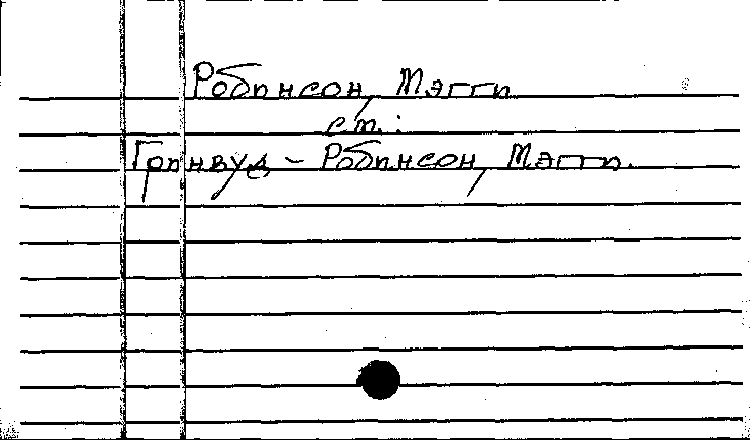 Робинсон, Мэгги
см.:
Гринвуд - Робинсон, Мэгги.